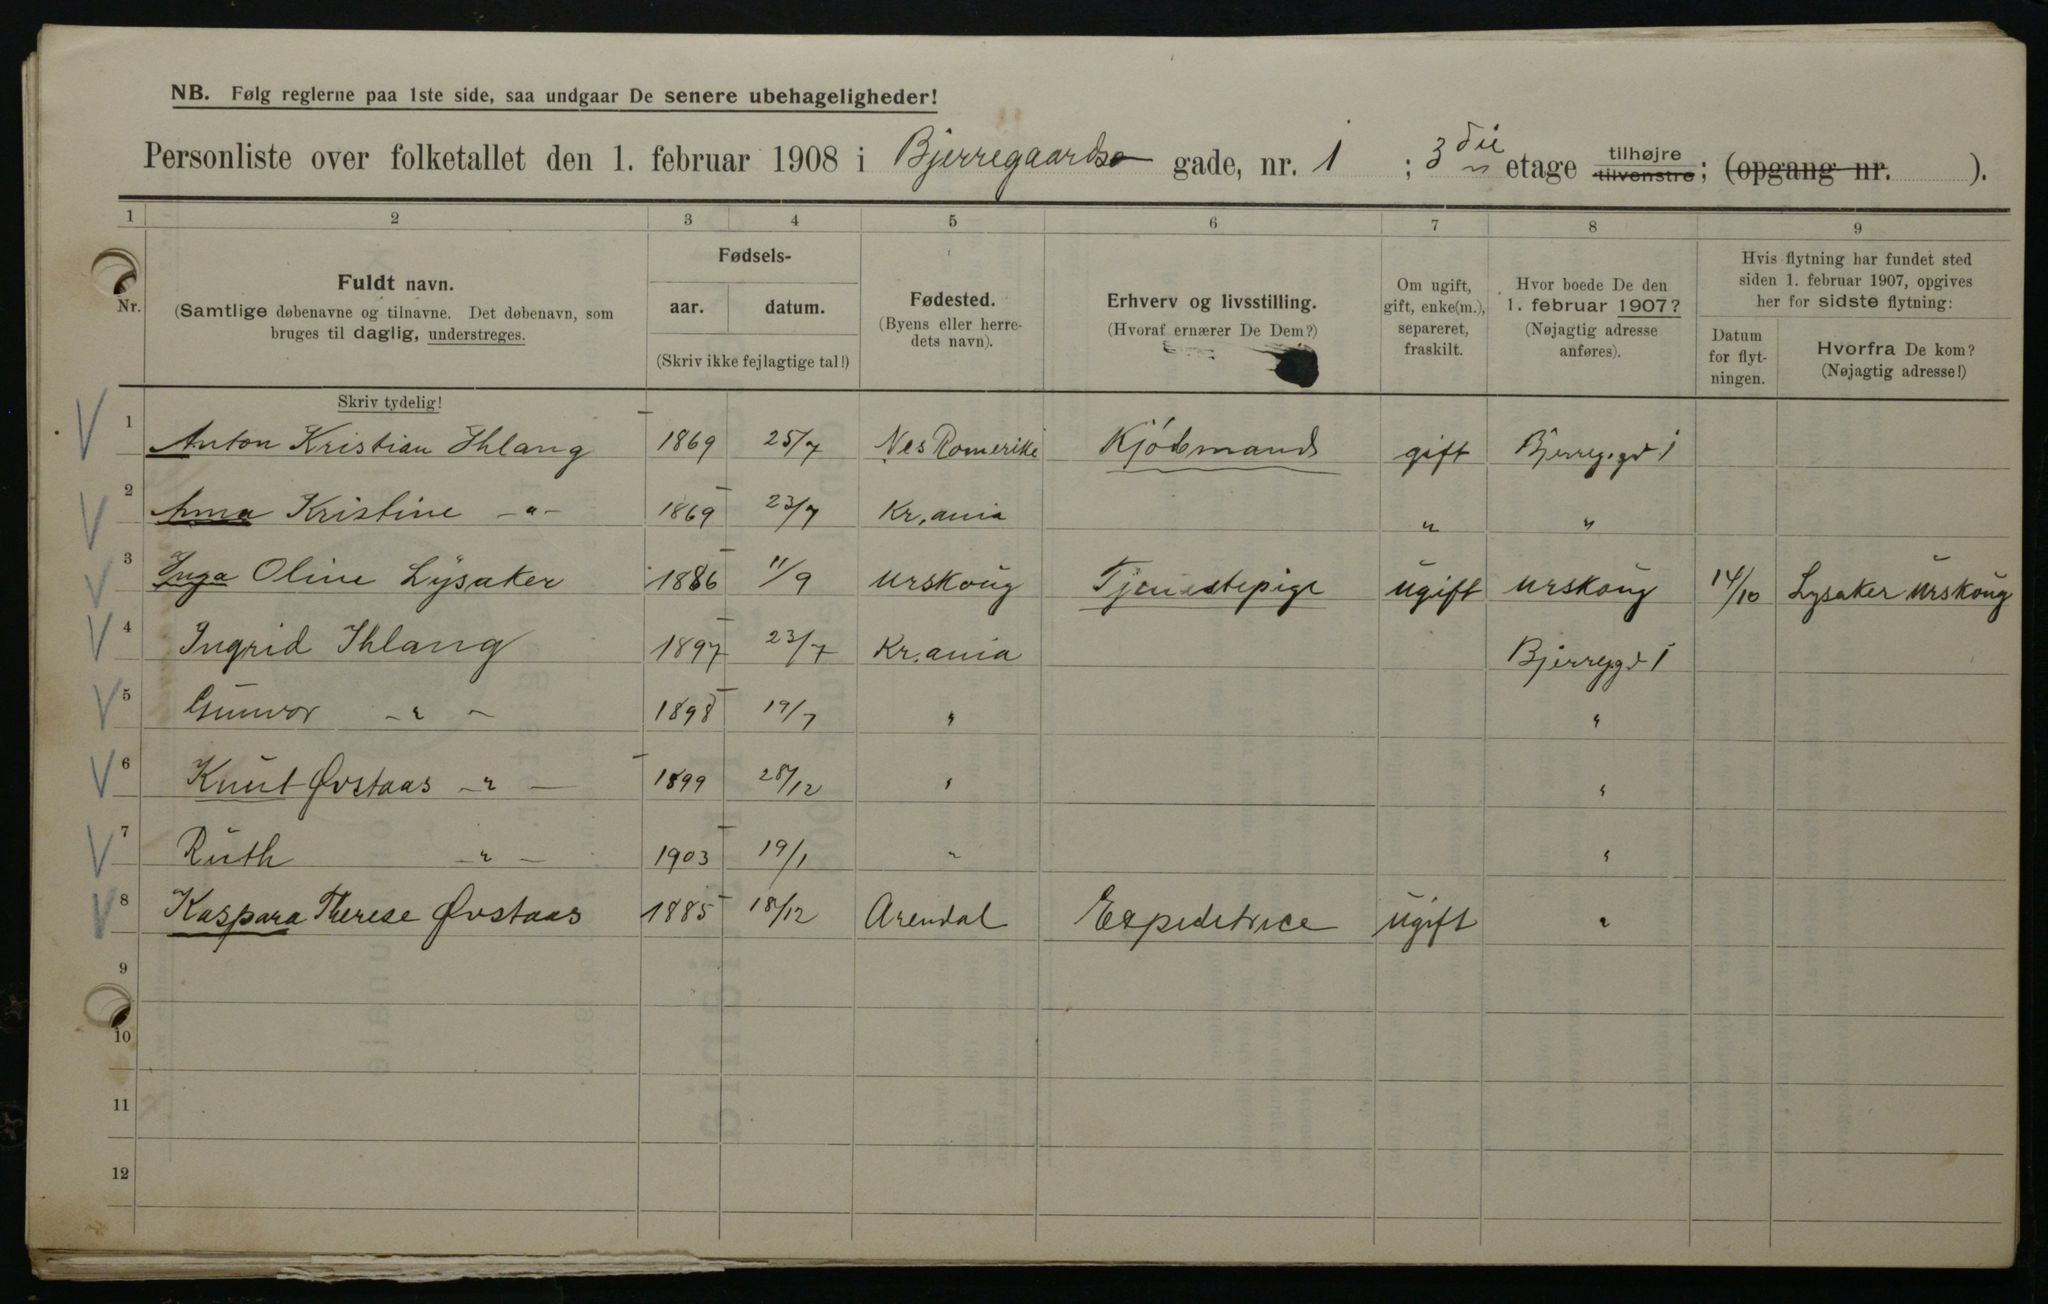 NB. Følg reglerne paa 1ste side, saa undgaar De senere ubehageligheder!
Personliste over folketallet den 1. februar 1908 i Bjerregaards gade, nr. 1 ; 3die etage tilhøjre tilvenstre; (opgang nr. ).
1 2 3 4 5 6 7 8 9
Nr. Fuldt navn. (Samtlige døbenavne og tilnavne. Det døbenavn, som bruges til daglig, understreges.
Fødsels- aar. datum. (Skriv ikke fejlagtige tal!)
Fødested. (Byens eller herredets navn).
Erhverv og livsstilling. (Hvoraf ernærer De Dem?)
Om ugift, gift, enke(m.), separeret, fraskilt.
Hvor boede De den 1. februar 1907? (Nøjagtig adresse anføres).
Hvis flytning har fundet sted siden 1. februar 1907, opgives her for sidste flytning:
Datum for flytningen. Hvorfra De kom? (Nøjagtig adresse!)
Skriv tydelig!
1 Anton Kristian Ihlang 1869 25/7 Nes Romerike Kjöbmand gift Bjerreg.gd 1
2 Anna Kristine -"- 1869 23/7 Kr.ania " "
3 Inga Oline Lysaker 1886 11/9 Urskoug Tjenestepige ugift Urskoug 14/10 Lysaker Urskoug
4 Ingrid Ihlang 1897 23/7 Kr.ania Bjerreg.gd 1
5 Gunvor -"- 1898 19/7 " "
6 Knut Øvstaas -"- 1899 28/12 " "
7 Ruth -"- 1903 19/1 " "
8 Kaspara Therese Øvstaas 1885 18/12 Arendal Expeditrice ugift "
9
10
11
12